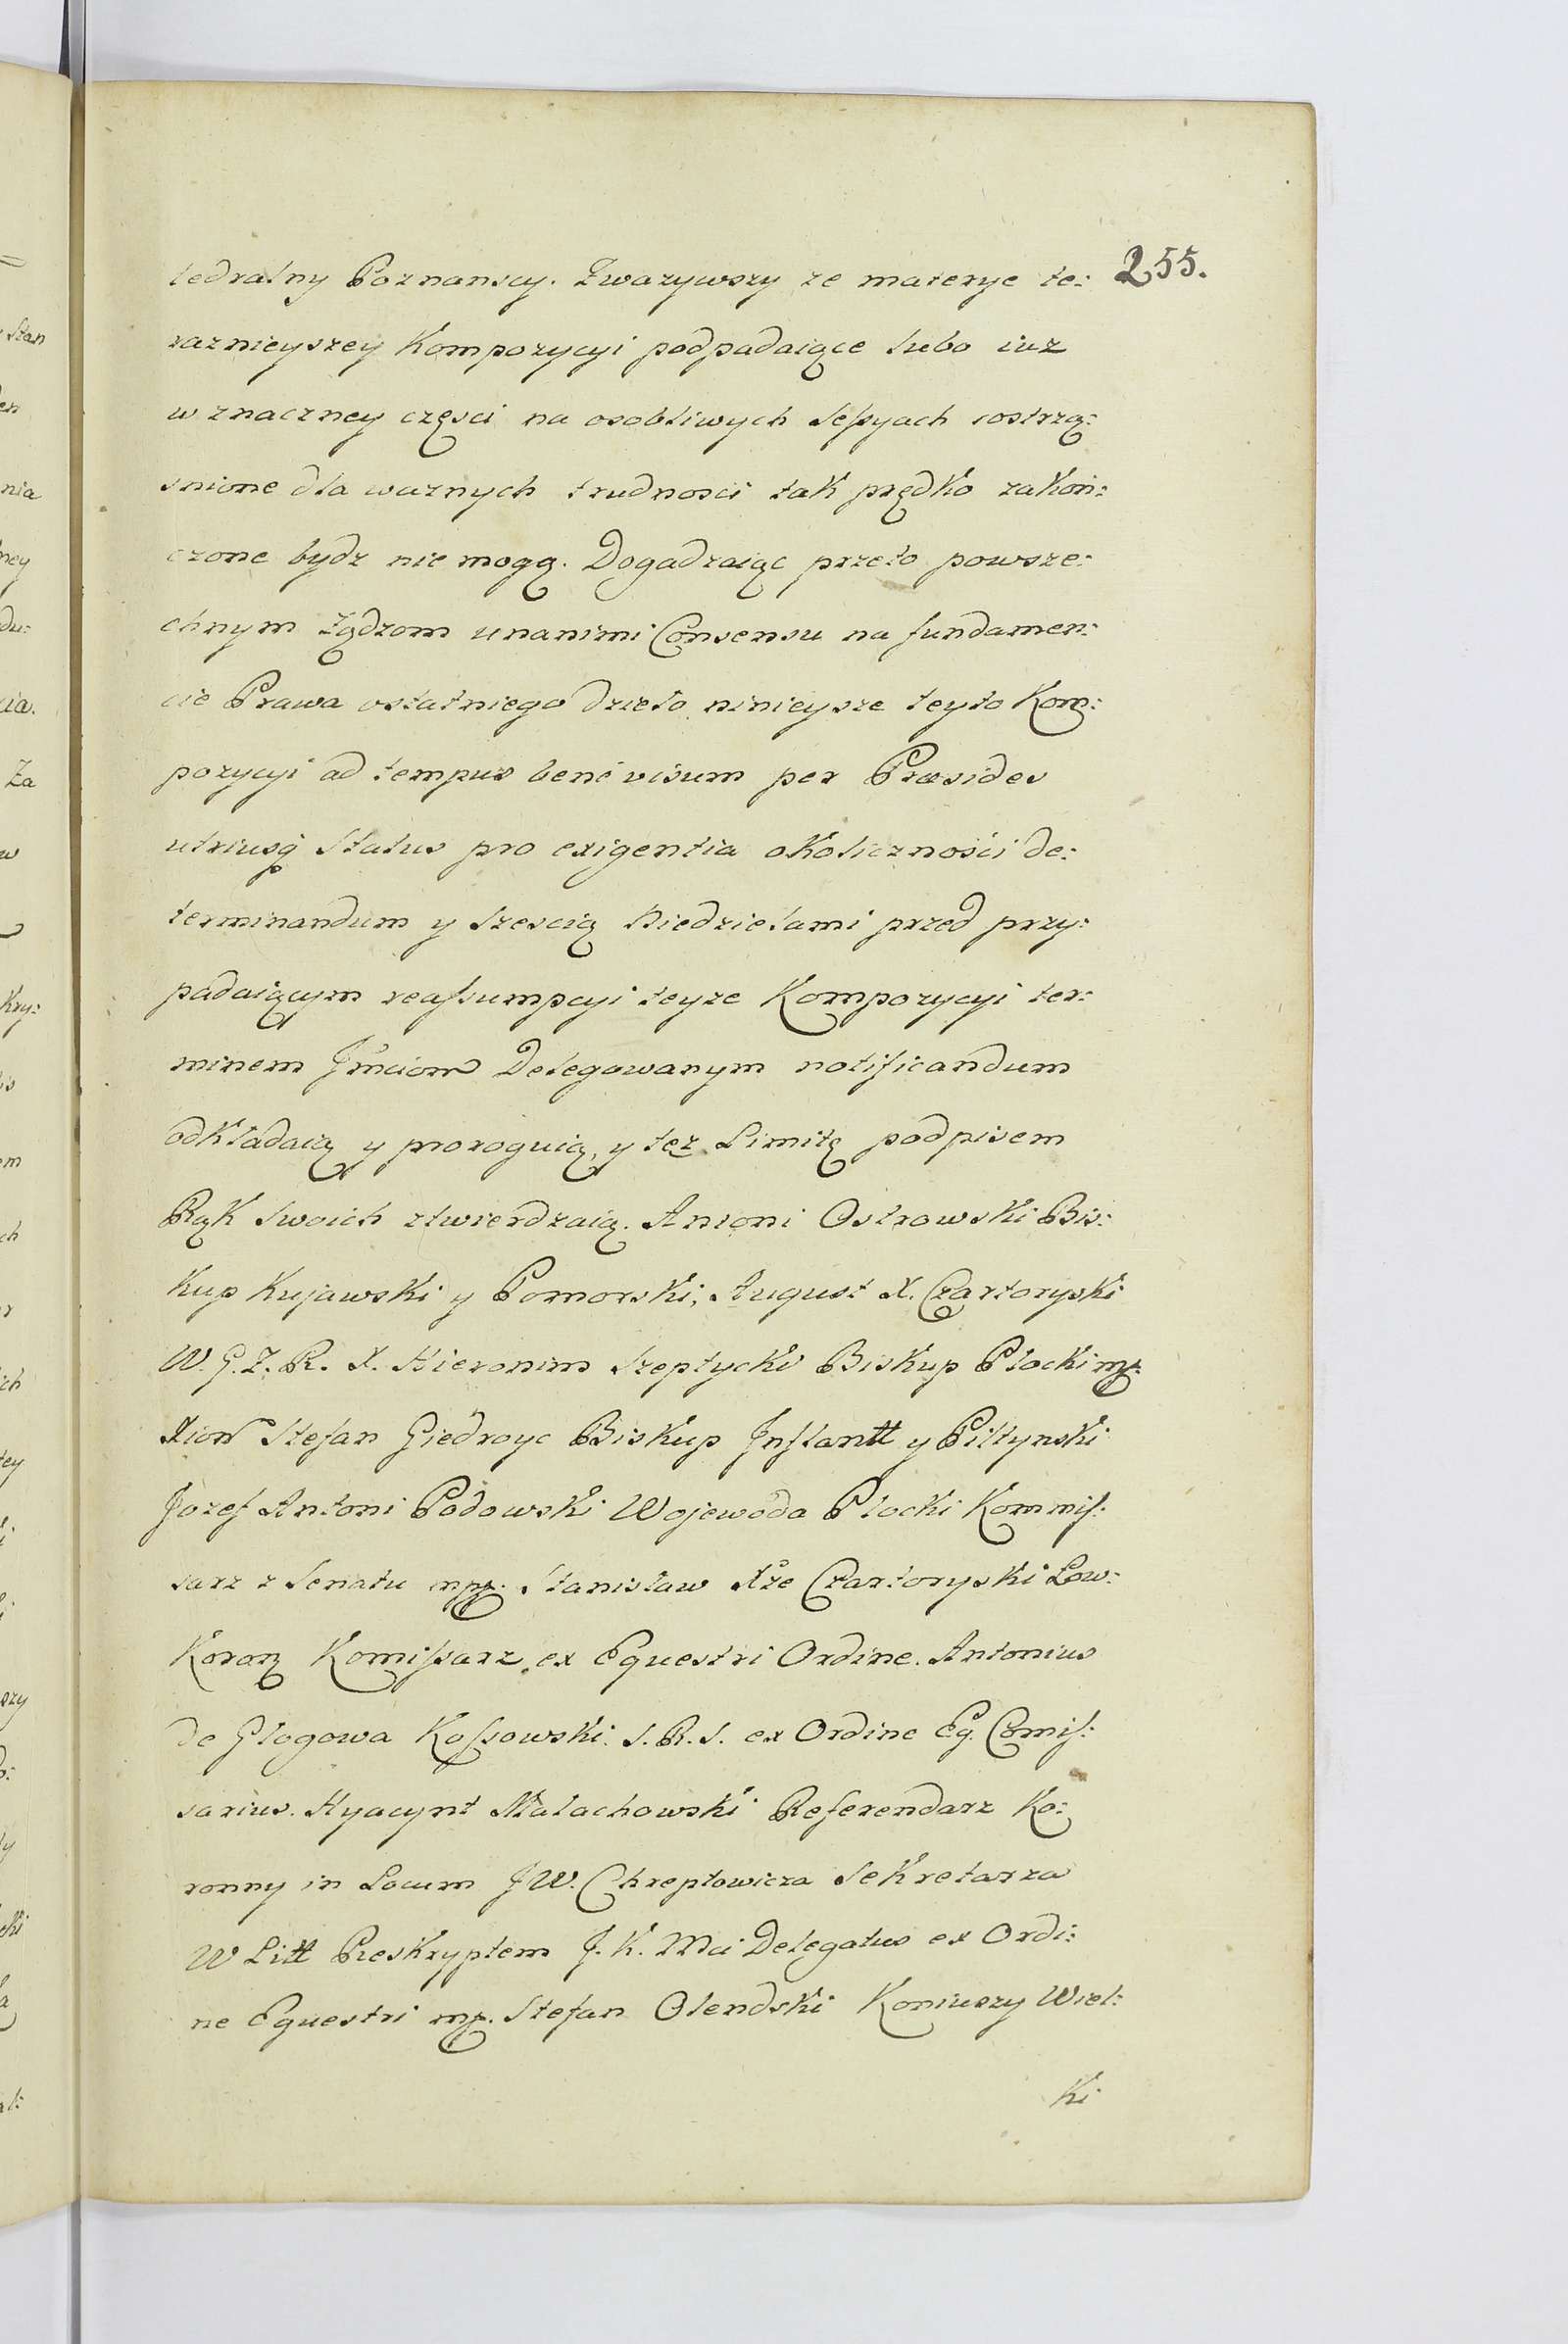 tedralny Poznanscy. Zwazywszy ze materye te:
255.
raznieyszey Kompozycyi podpadaiące lubo iuz
w znaczney częsci na osobliwych Sessyach rostrzą:
snione dla waznych trudnosci tak prędko zakon:
czone bydz nie mogą. Dogadzaiąc przeto powsze:
chnym Ządzom unanimi Consensu na fundamen:
cie Prawa ostatniego dzieło ninieysze teyto Kom:
pozycyi ad tempus bené visum per Præsides
utriusq Status pro exigentia okoliczności de:
terminandum y Szescią Niedzielami przed przy:
padaiącym reassumpcyi teyze Kompozycyi ter:
minem Jmciom Delegowanym notificandum
odkładaią y proroguią, y tez Limitę podpisem
Rąk Swoich ztwierdzaią. Antoni Ostrowski Bis:
kup Kujawski y Pomorski, August X. Czartoryski
W. G. Z. R. X. Hieronim Szeptycki Biskup Płocki mp.
Xion Stefan Giedroyc Biskup Inflantt y Piltynski
Jozef Antoni Podowski Wojewoda Płocki Kommis:
sarz z Senatu mp. Stanisław Xże Czartoryski Łow:
Koron Komissarz ex Equestri Ordine. Antonius
de Głogowa Kossowski. S. R. S. ex Ordine Eq. Comis:
sarius. Hyacynt Małachowski Referendarz Ko:
ronny in Locum JW. Chreptowicza Sekretarza
W Litt Reskryptem J. K. Mci Delegatus ex Ordi:
ne Equestri mp. Stefan Olendski Koniuszy Wiel:
ki